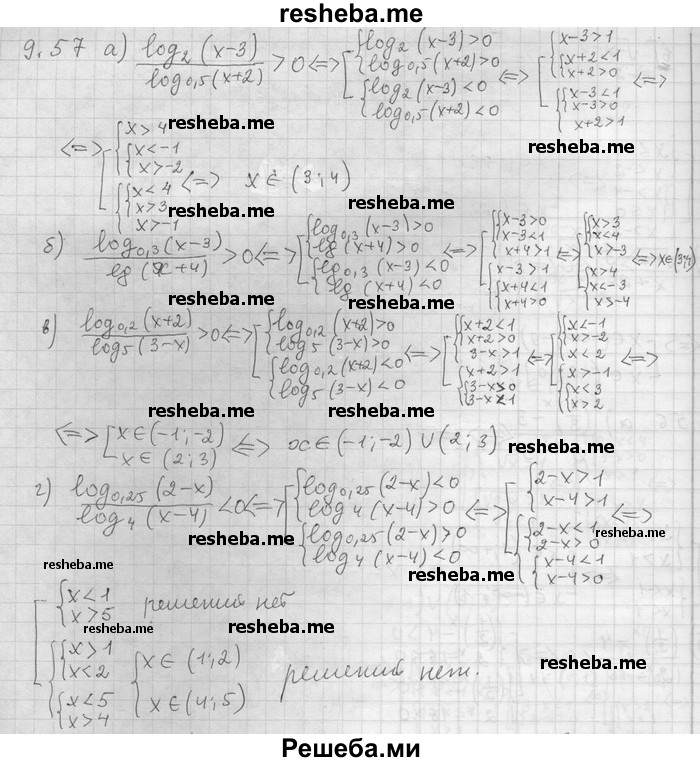 resheba.me
9.57 а) log₂(x-3)/log₀,₅(x+2) > 0 <=> [{log₂(x-3)>0 {log₀,₅(x+2)>0 {log₂(x-3)<0 {log₀,₅(x+2)<0 <=> [{x-3>1 {x+2<1 {x+2>0 {x-3<1 {x-3>0 {x+2>1 <=>
resheba.me
<=> [{x>4 {x<-1 {x>-2 {x<4 {x>3 {x>-1 <=> x∈(3;4)
resheba.me resheba.me
resheba.me resheba.me
б) log₀,₃(x-3)/lg(x+4) > 0 <=> [{log₀,₃(x-3)>0 {lg(x+4)>0 {log₀,₃(x-3)<0 {lg(x+4)<0 <=> [{x-3>0 {x-3<1 {x+4>1 {x-3>1 {x+4<1 {x+4>0 <=> [{x>3 {x<4 {x>-3 {x>4 {x<-3 {x>-4 <=> x∈(3;4)
resheba.me resheba.me
в) log₀,₂(x+2)/log₅(3-x) > 0 <=> [{log₀,₂(x+2)>0 {log₅(3-x)>0 {log₀,₂(x+2)<0 {log₅(3-x)<0 <=> [{x+2<1 {x+2>0 {3-x>1 {x+2>1 {3-x>0 {3-x<1 <=> [{x<-1 {x>-2 {x<2 {x>-1 {x<3 {x>2 <=>
resheba.me resheba.me
<=> [x∈(-1;-2) x∈(2;3) <=> x∈(-1;-2)∪(2;3)
resheba.me
г) log₀,₂₅(2-x)/log₄(x-4) <0 <=> [{log₀,₂₅(2-x)<0 {log₄(x-4)>0 {log₀,₂₅(2-x)>0 {log₄(x-4)<0 <=> [{2-x>1 {x-4>1 {2-x<1 {2-x>0 {x-4<1 {x-4>0 <=>
resheba.me resheba.me
resheba.me resheba.me
[{x<1 {x>5 решений нет
resheba.me resheba.me
{x>1 {x<2 {x<5 {x>4 {x∈(1;2) {x∈(4;5) решений нет.
resheba.me
Решеба.ми